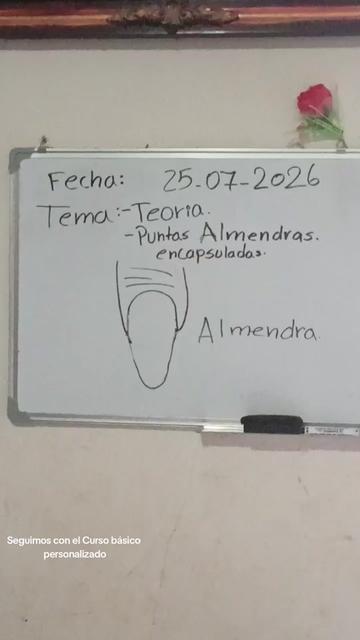 Fecha: 25-07-2026
Tema:-Teoria.
-Puntas Almendras.
encapsuladas.
Almendra.
Seguimos con el Curso básico
personalizado